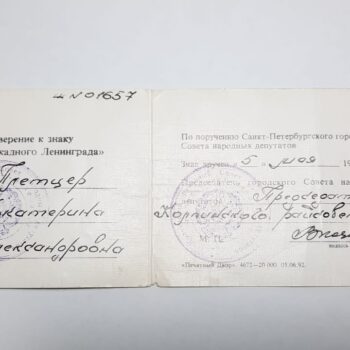 Ц № 01657
верение к знаку
кадного Ленинграда»
Плетцер
катерина
лександровна
По поручению Санкт-Петербургского горо
Совета народных депутатов
Знак вручен «5» мая 19
Председатель городского Совета на
депутатов Председат
Колпинского райсове
М. П.
подпись
«Печатный Двор» 4672—20 000 05.06.92.